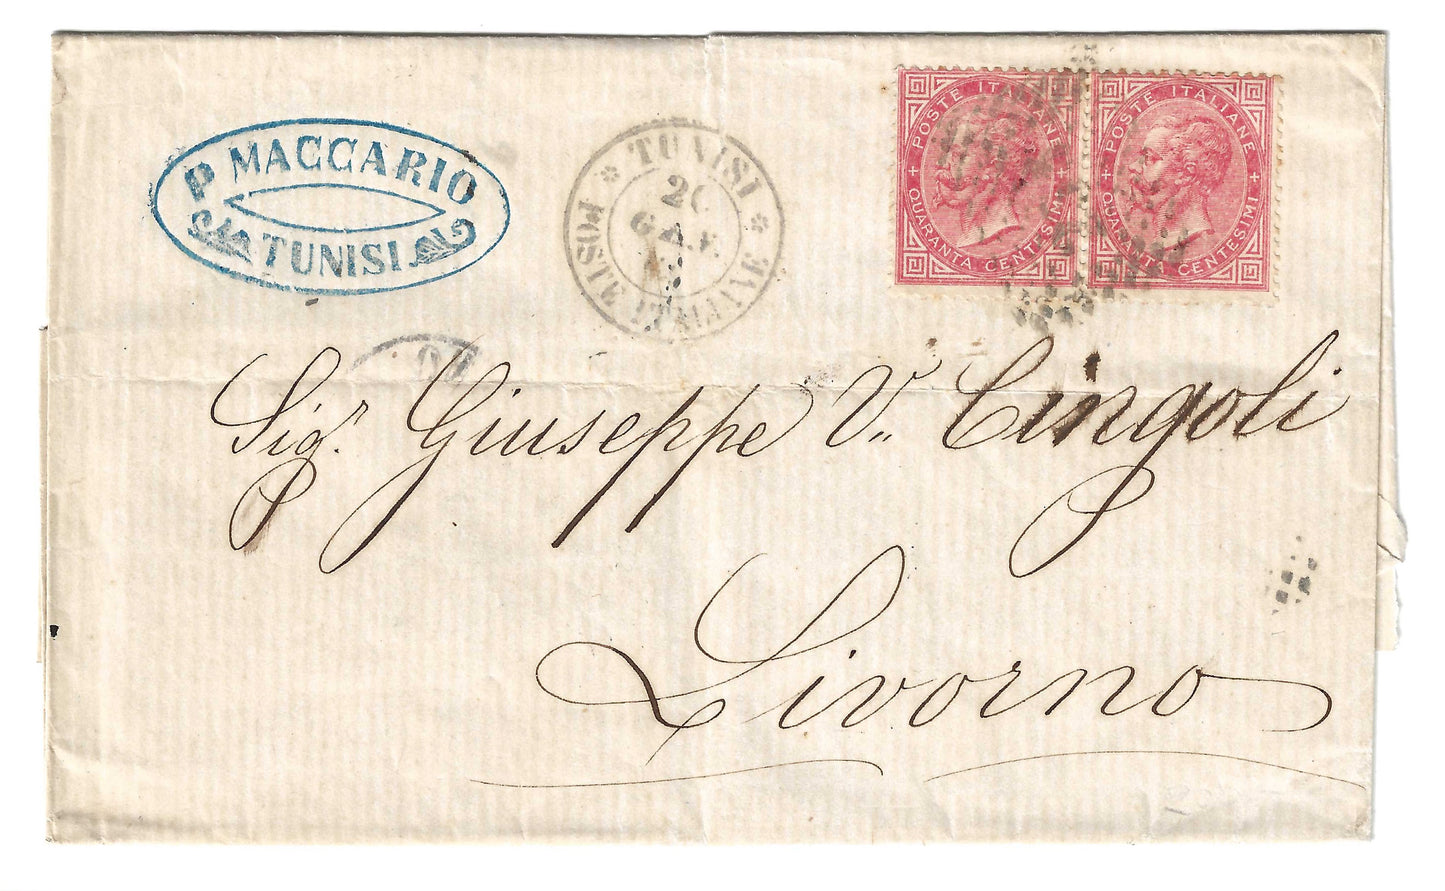 P MACCARIO
TUNISI
* TUNISI *
POSTE ITALIANE
GEN
POSTE ITALIANE
QUARANTA CENTESIMI
POSTE ITALIANE
QUARANTA CENTESIMI
Sigr. Giuseppe V. Cingoli
Livorno